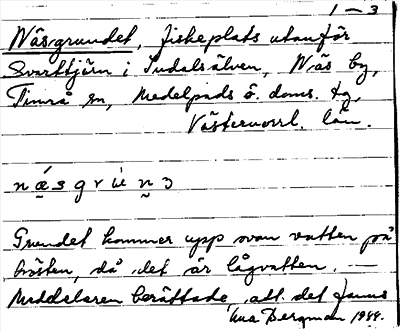 1 — 3
Näsgrundet, fiskeplats utanför
Svarttjärn i Indalsälven, Näs by,
Timrå sn, Medelpads ö. doms. tg,
Västernorrl. län.
Grundet kommer upp ovan vatten på
hösten, då det är lågvatten. —
Meddelaren berättade, att det fanns
Anna Bergman 1944.